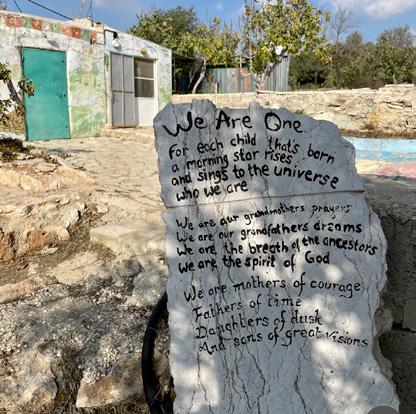 We Are One
For each child that's born
a morning star rises
and sings to the universe
who we are
We are our grandmothers prayers
We are our grandfathers dreams
We are the breath of the ancestors
We are the spirit of God
We are mothers of courage
Fathers of time
Daughters of dusk
And sons of great visions